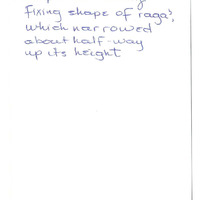 fixing shape of raga?,
which narrowed
about half-way
up its height